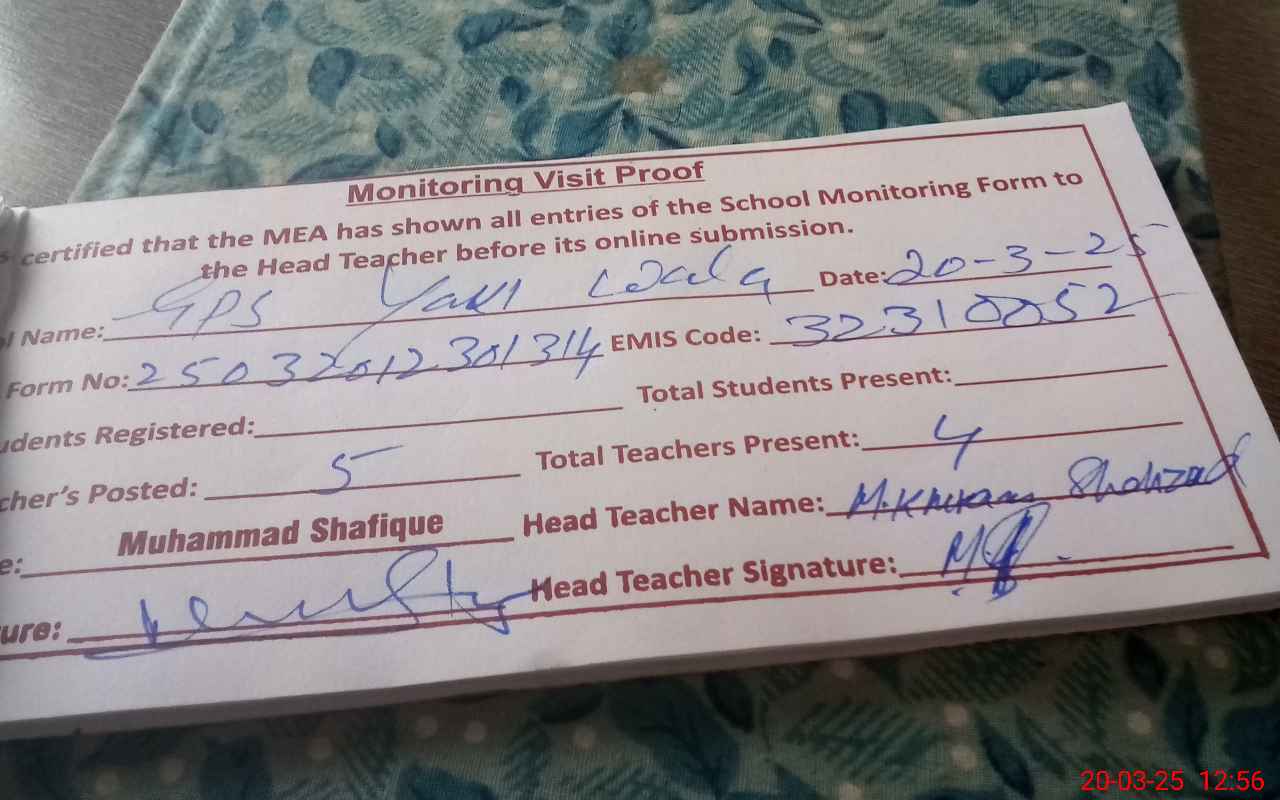 Monitoring Visit Proof
s certified that the MEA has shown all entries of the School Monitoring Form to
the Head Teacher before its online submission.
l Name: GPS Yaki Wala Date: 20-3-25
Form No: 25032012301314 EMIS Code: 32310052
udents Registered: Total Students Present:
cher's Posted: 5 Total Teachers Present: 4
e: Muhammad Shafique Head Teacher Name: M. Shahzad
ure: Head Teacher Signature:
20-03-25 12:56